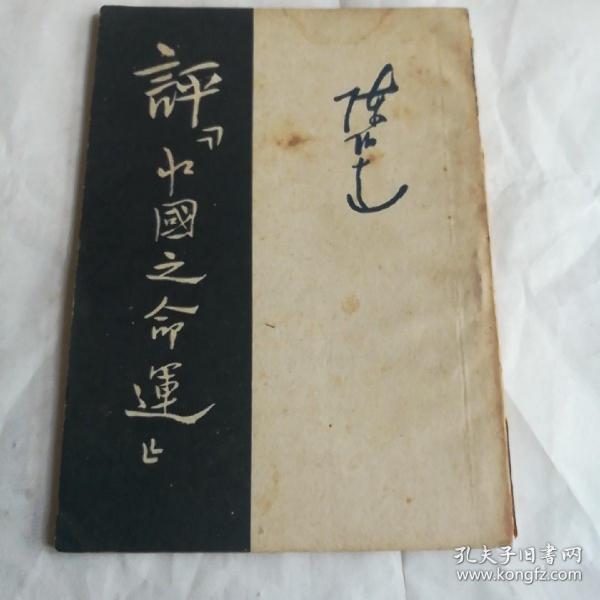 評『中國之命運』
陳伯達
孔夫子旧书网
www.kongfz.com